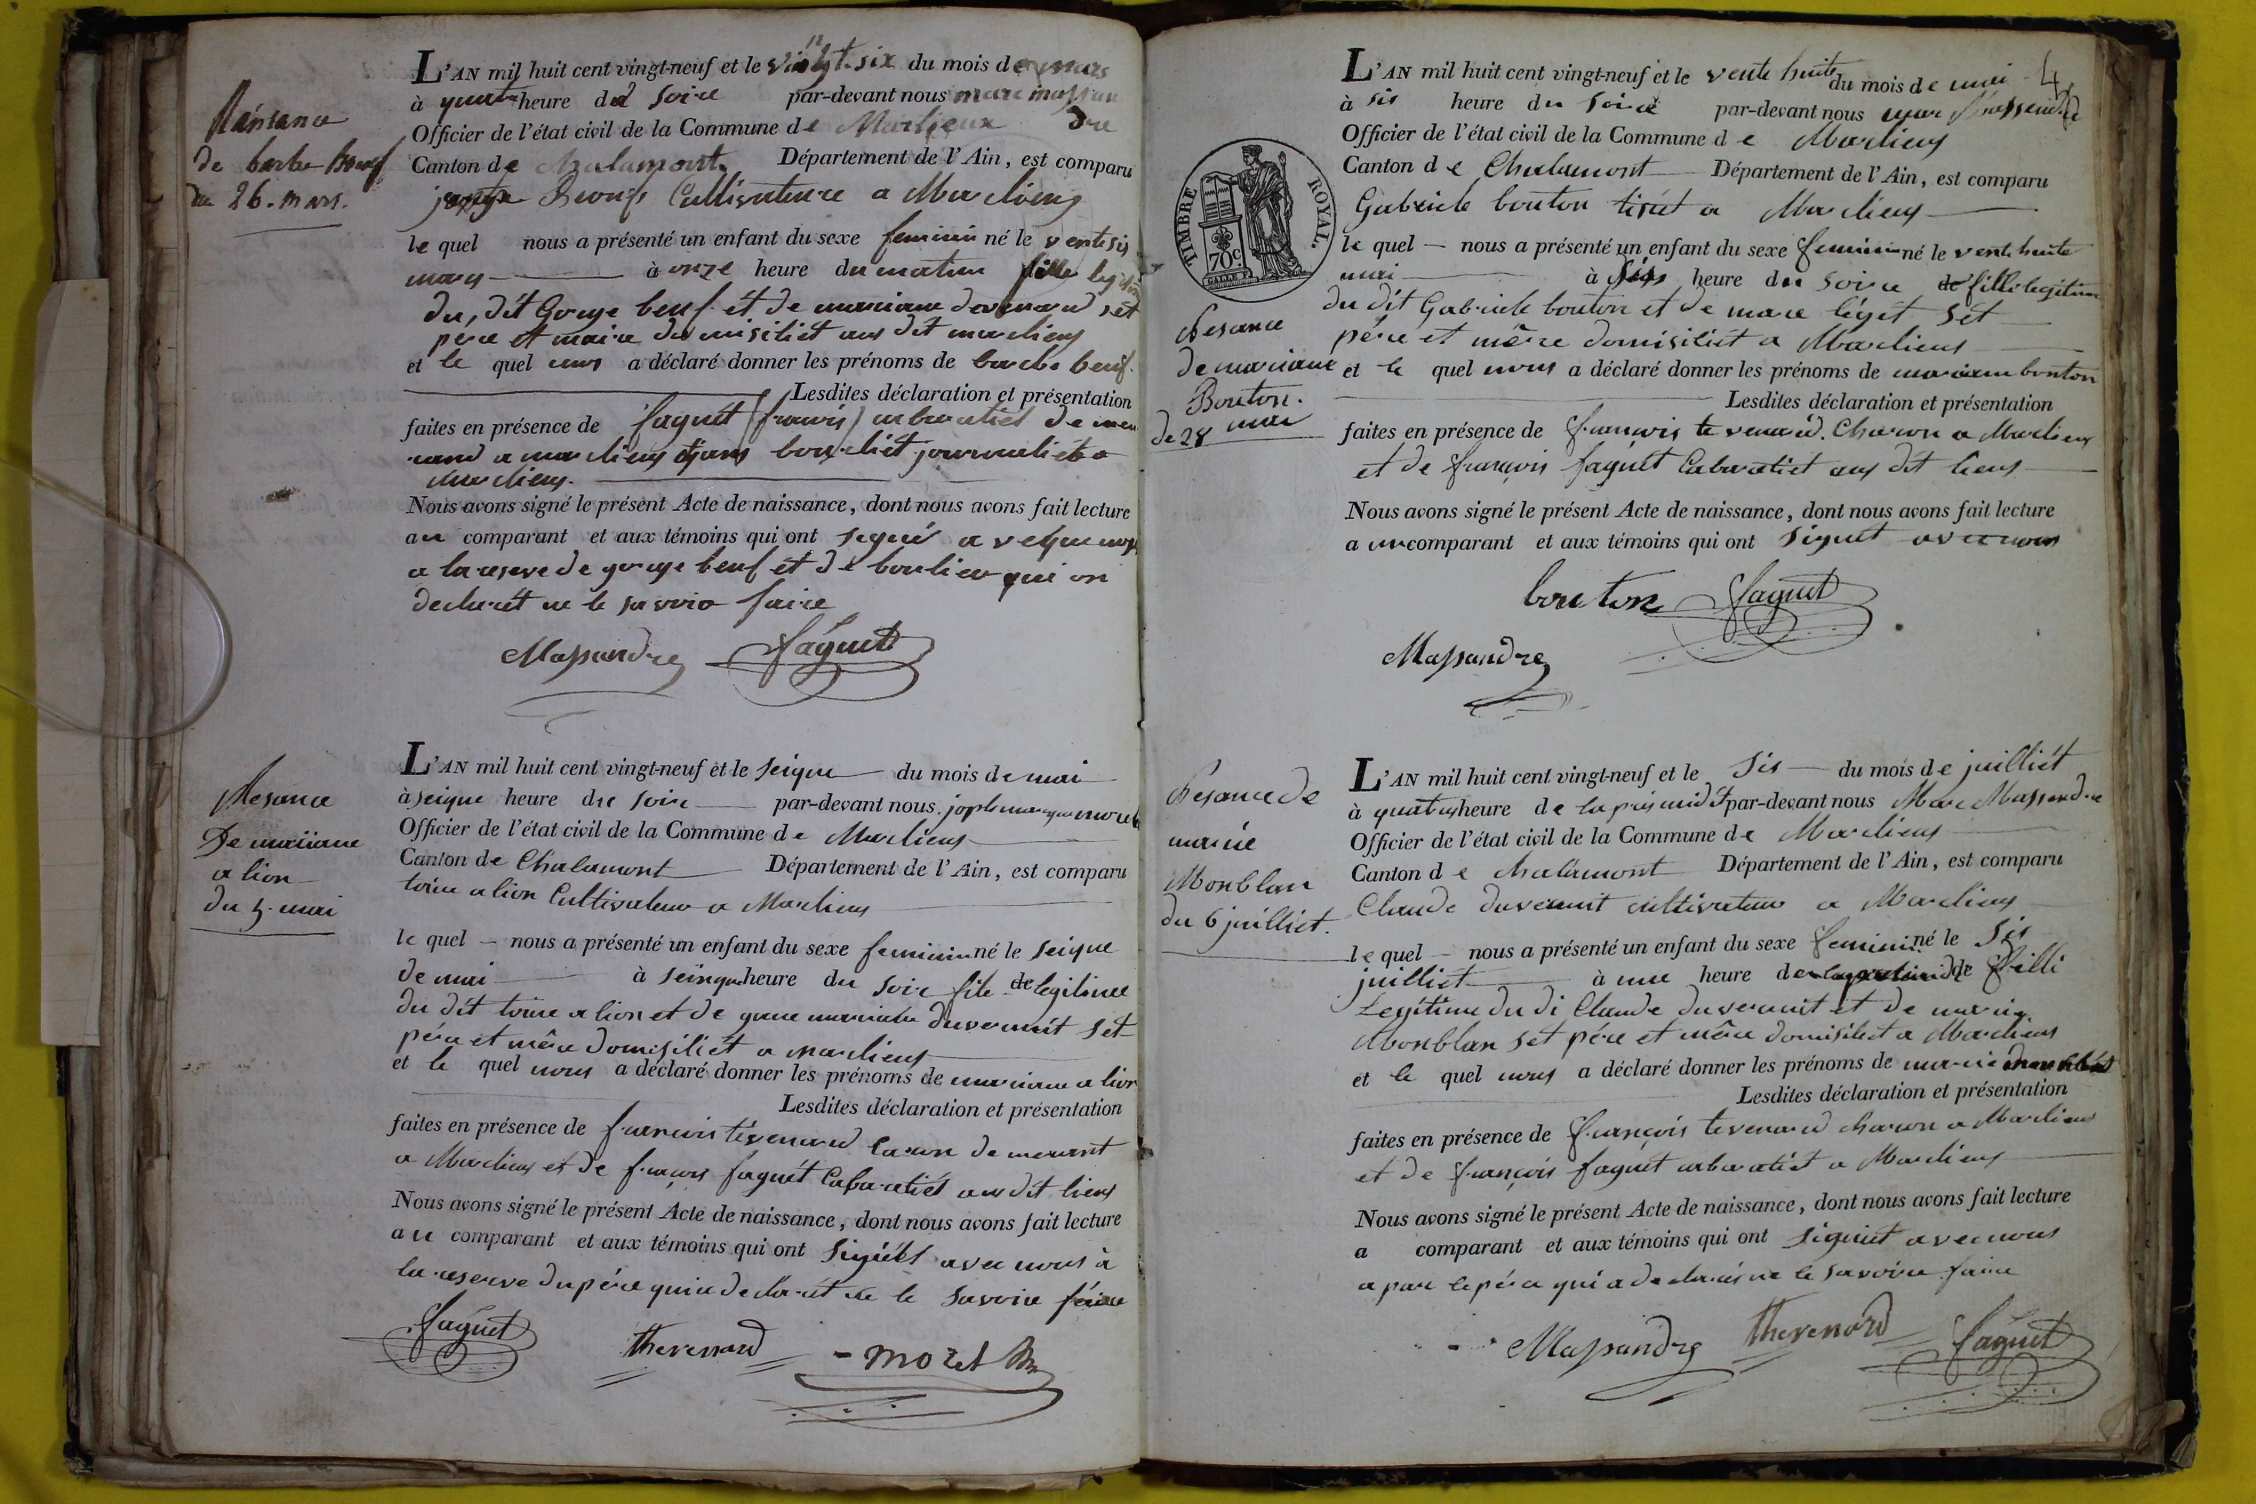 Naisance
de barbe Boeuf
du 26. mars.
L'AN mil huit cent vingt-neuf et le vingt-six du mois de mars
à quatre heure du soire par-devant nous marc massan
Officier de l'état civil de la Commune de Marlieux dre
Canton de Chalamont Département de l'Ain, est comparu
Beouf Cultivateure a Marlieux
le quel nous a présenté un enfant du sexe feminin né le ventsis
mars à onze heure du matin fille legitime
du, dit Gorge beuf et de mariane devenard set
père et maire domisiliét aus dit marlieus
et le quel nous a déclaré donner les prénoms de barbe beuf.
Lesdites déclaration et présentation
faites en présence de faguet (francois) cabaratiet demeu
rand a marlieus et jans bouxliét journaliét a
Marlieus.
Nous avons signé le présent Acte de naissance, dont nous avons fait lecture
au comparant et aux témoins qui ont signé a veque nous
a la reserve de gorge beuf et de boulier qui on
declarét ne le savoir faire
Massandre faguet
Nesance
De mariane
a lion
du 5. mai
L'AN mil huit cent vingt-neuf et le seique du mois de mai
à seique heure du soire par-devant nous. joseph marque moret
Officier de l'état civil de la Commune de Marlieus
Canton de Chalamont Département de l'Ain, est comparu
toine a lion Cultivateur a Marlieus
le quel – nous a présenté un enfant du sexe feminin né le seique
de mai à seinque heure du soir file de legitime
du dit toine a lion et de duvernit set
père et mêre domisiliét a marlieus
et le quel nous a déclaré donner les prénoms de mariane a lion
Lesdites déclaration et présentation
faites en présence de francois tévenard caron demeurant
a Marlieus et de fraçois faguét Cabaratiét aus dit lieus
Nous avons signé le présent Acte de naissance, dont nous avons fait lecture
au comparant et aux témoins qui ont siguét avec nous à
la reserve du père qui a declarét ne le savoir féire
faguet thevenard moret
4
L'AN mil huit cent vingt-neuf et le vente huite du mois de mai
à sis heure du soire par-devant nous marc Massendre
Officier de l'état civil de la Commune de Marlieus
Canton de Chalamont Département de l'Ain, est comparu
Gabriele bouton tisét a Marlieus
TIMBRE ROYAL.
70c
le quel – nous a présenté un enfant du sexe feminin né le vente huite
mai à sis heure du soire de fille legitime
du dit Gabriele bouton et de marie légét sét
père et mère domisiliét a Marlieus
Nesance
de mariane
Bouton.
de 28 mai
et le quel nous a déclaré donner les prénoms de mariane bouton
Lesdites déclaration et présentation
faites en présence de françois tevenard. Charon a Marlieus
et de françois faguét Cabaratiet aus dit lieus
Nous avons signé le présent Acte de naissance, dont nous avons fait lecture
a un comparant et aux témoins qui ont siguét avec nous
bouton faguet
Massandre
Nesance de
marie
Monblan
du 6 juilliet.
L'AN mil huit cent vingt-neuf et le sis du mois de juilliét
à quatres heure de la pres midi par-devant nous Marc Massendre
Officier de l'état civil de la Commune de Marlieus
Canton de Chalamont Département de l'Ain, est comparu
Claude duvernit cultivateur a Marlieus
le quel – nous a présenté un enfant du sexe feminin né le sis
juilliet à une heure de fille
Legitime du di Claude duvernit et de marie
Monblan set père et mêre domisiliet a Marlieus
et le quel nous a déclaré donner les prénoms de marie
Lesdites déclaration et présentation
faites en présence de françois tevenard charon a Marlieus
et de françois faguét cabaratiét a Marlieus
Nous avons signé le présent Acte de naissance, dont nous avons fait lecture
a comparant et aux témoins qui ont siguiet avec nous
a par le père qui a declarés ne le savoire faire
Massandre thevenard faguet